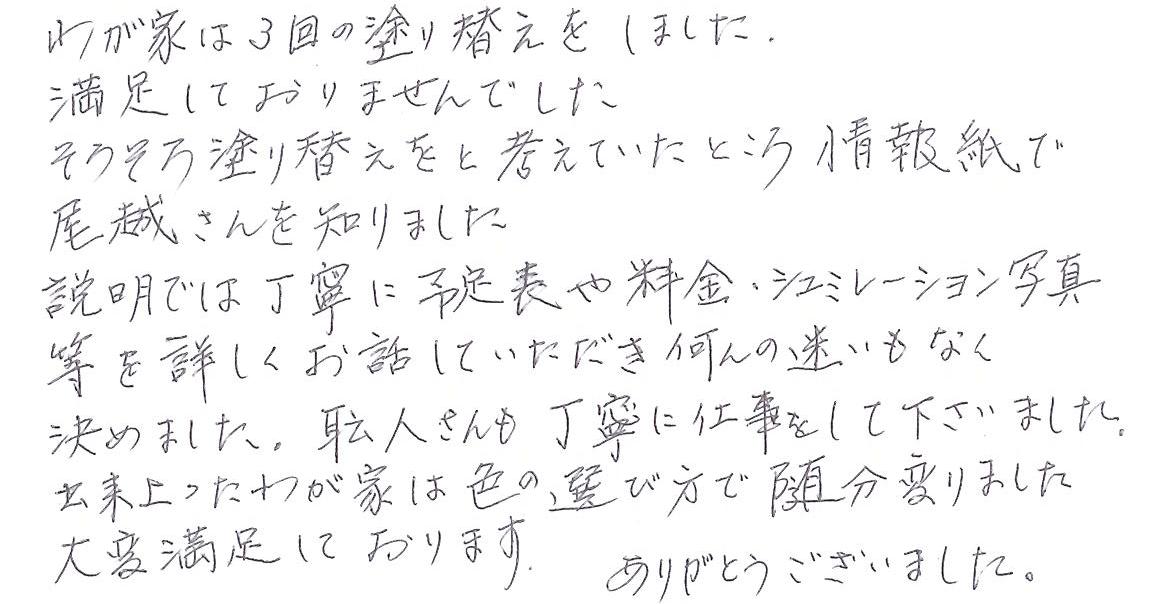 わが家は3回の塗り替えをしました.
満足しておりませんでした
そろそろ塗り替えをと考えていたところ情報紙で
尾越さんを知りました
説明では丁寧に予定表や料金・シュミレーション写真
等を詳しくお話していただき何んの迷いもなく
決めました。耺人さんも丁寧に仕事をして下さいました。
出来上ったわが家は色の選び方で随分変りました
大変満足しております.
ありがとうございました。